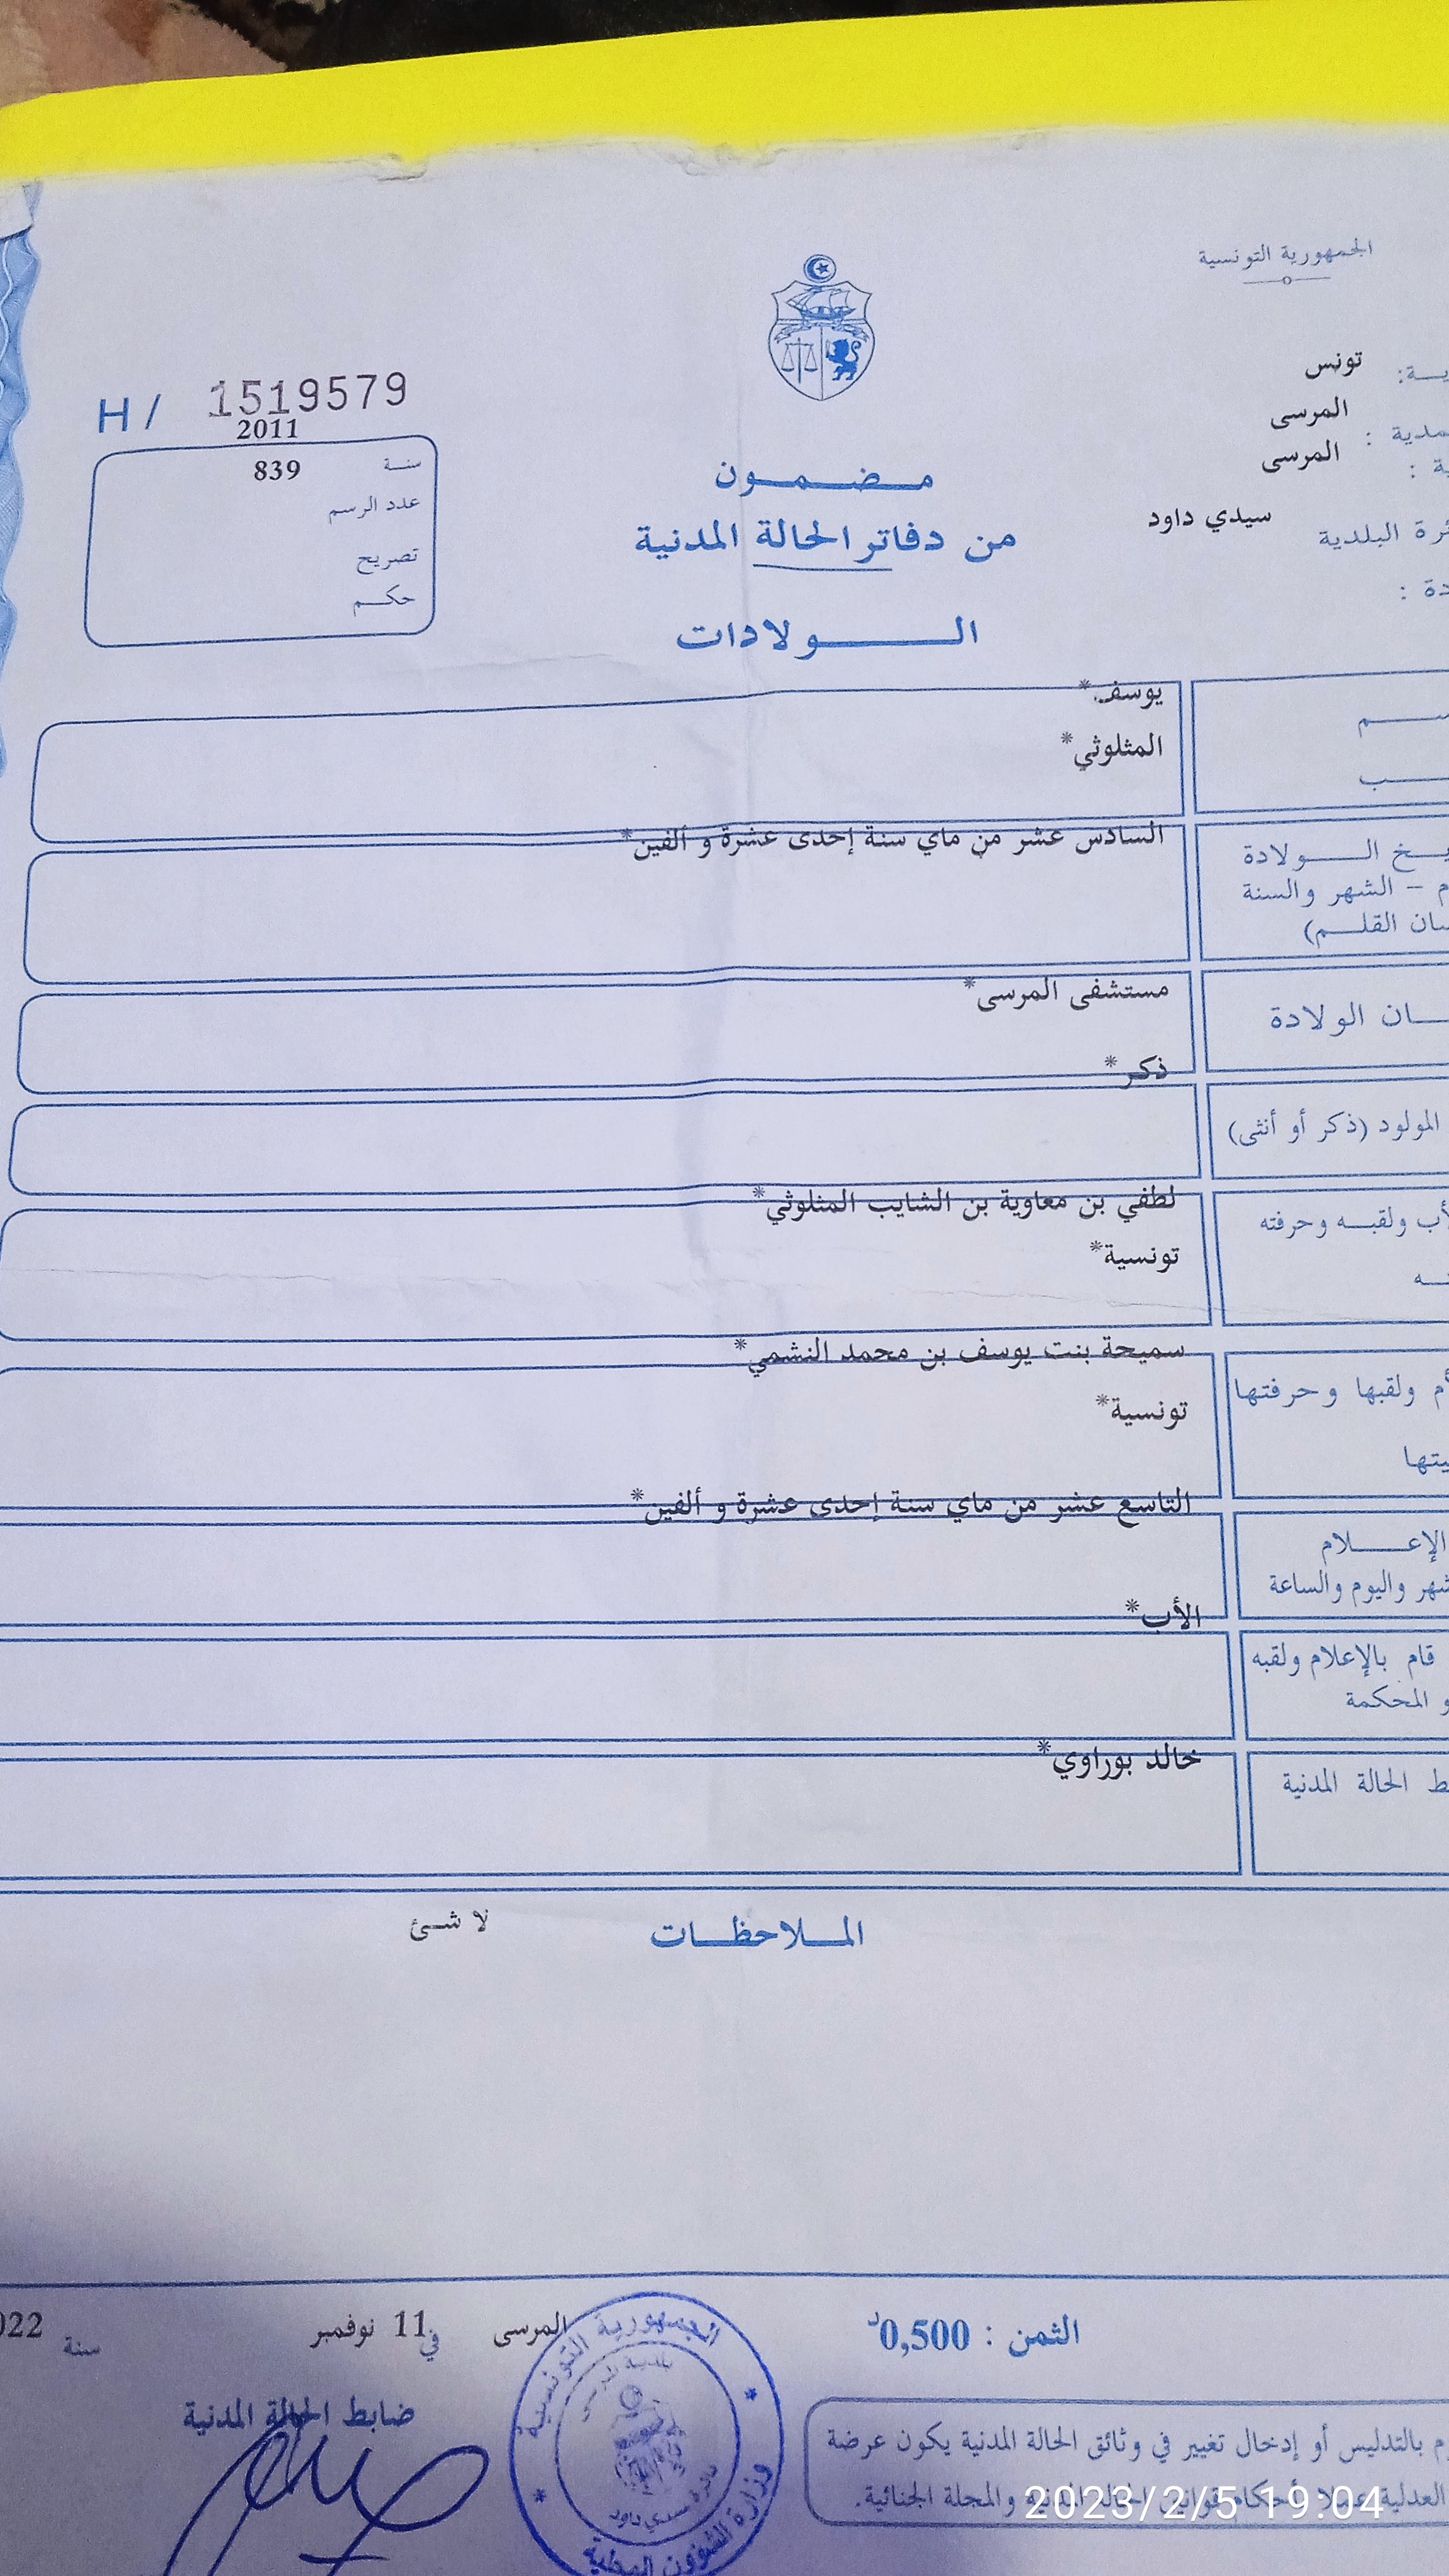 الجمهورية التونسية
تونس
المرسى
المرسى
ـئرة البلدية سيدي داود
H/ 1519579
2011
سنة 839
عدد الرسم
تصريح
حكم
مضمون
من دفاتر الحالة المدنية
الولادات
يوسف.*
المثلوثي*
ـيخ الولادة
ـم – الشهر والسنة
ـسان القلم)
السادس عشر من ماي سنة إحدى عشرة و ألفين*
ـان الولادة
مستشفى المرسى*
ذكر*
المولود (ذكر أو أنثى)
لطفي بن معاوية بن الشايب المثلوثي*
ـأب ولقبه وحرفته
تونسية*
سميحة بنت يوسف بن محمد النشمي*
ـأم ولقبها وحرفتها
تونسية*
ـيتها
التاسع عشر من ماي سنة إحدى عشرة و ألفين*
الإعلام
ـشهر واليوم والساعة
الأب*
قام بالإعلام ولقبه
و المحكمة
خالد بوراوي*
ـط الحالة المدنية
الملاحظات لا شئ
الثمن : 0,500د
المرسى في 11 نوفمبر سنة 022
ضابط الحالة المدنية
الجمهورية التونسية
بلدية المرسى
دائرة سيدي داود
وزارة الشؤون المحلية
ـم بالتدليس أو إدخال تغيير في وثائق الحالة المدنية يكون عرضة
العدلية أحكام قوانين الحالة المدنية والمجلة الجنائية.
2023/2/5 19:04